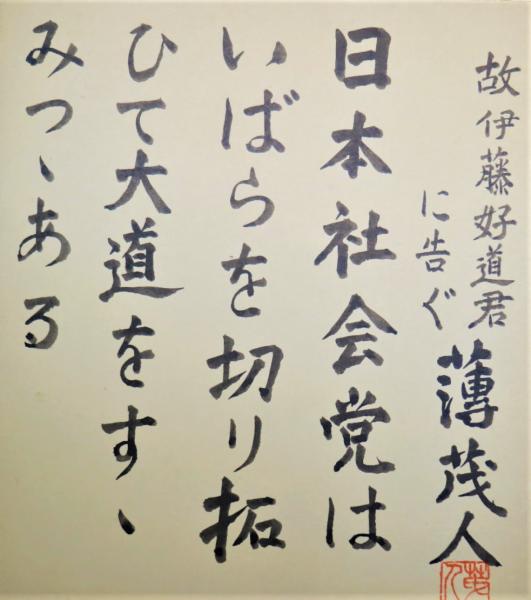 故伊藤好道君
に告ぐ
薄茂人
日本社会党は
いばらを切り拓
ひて大道をすゝ
みつゝある